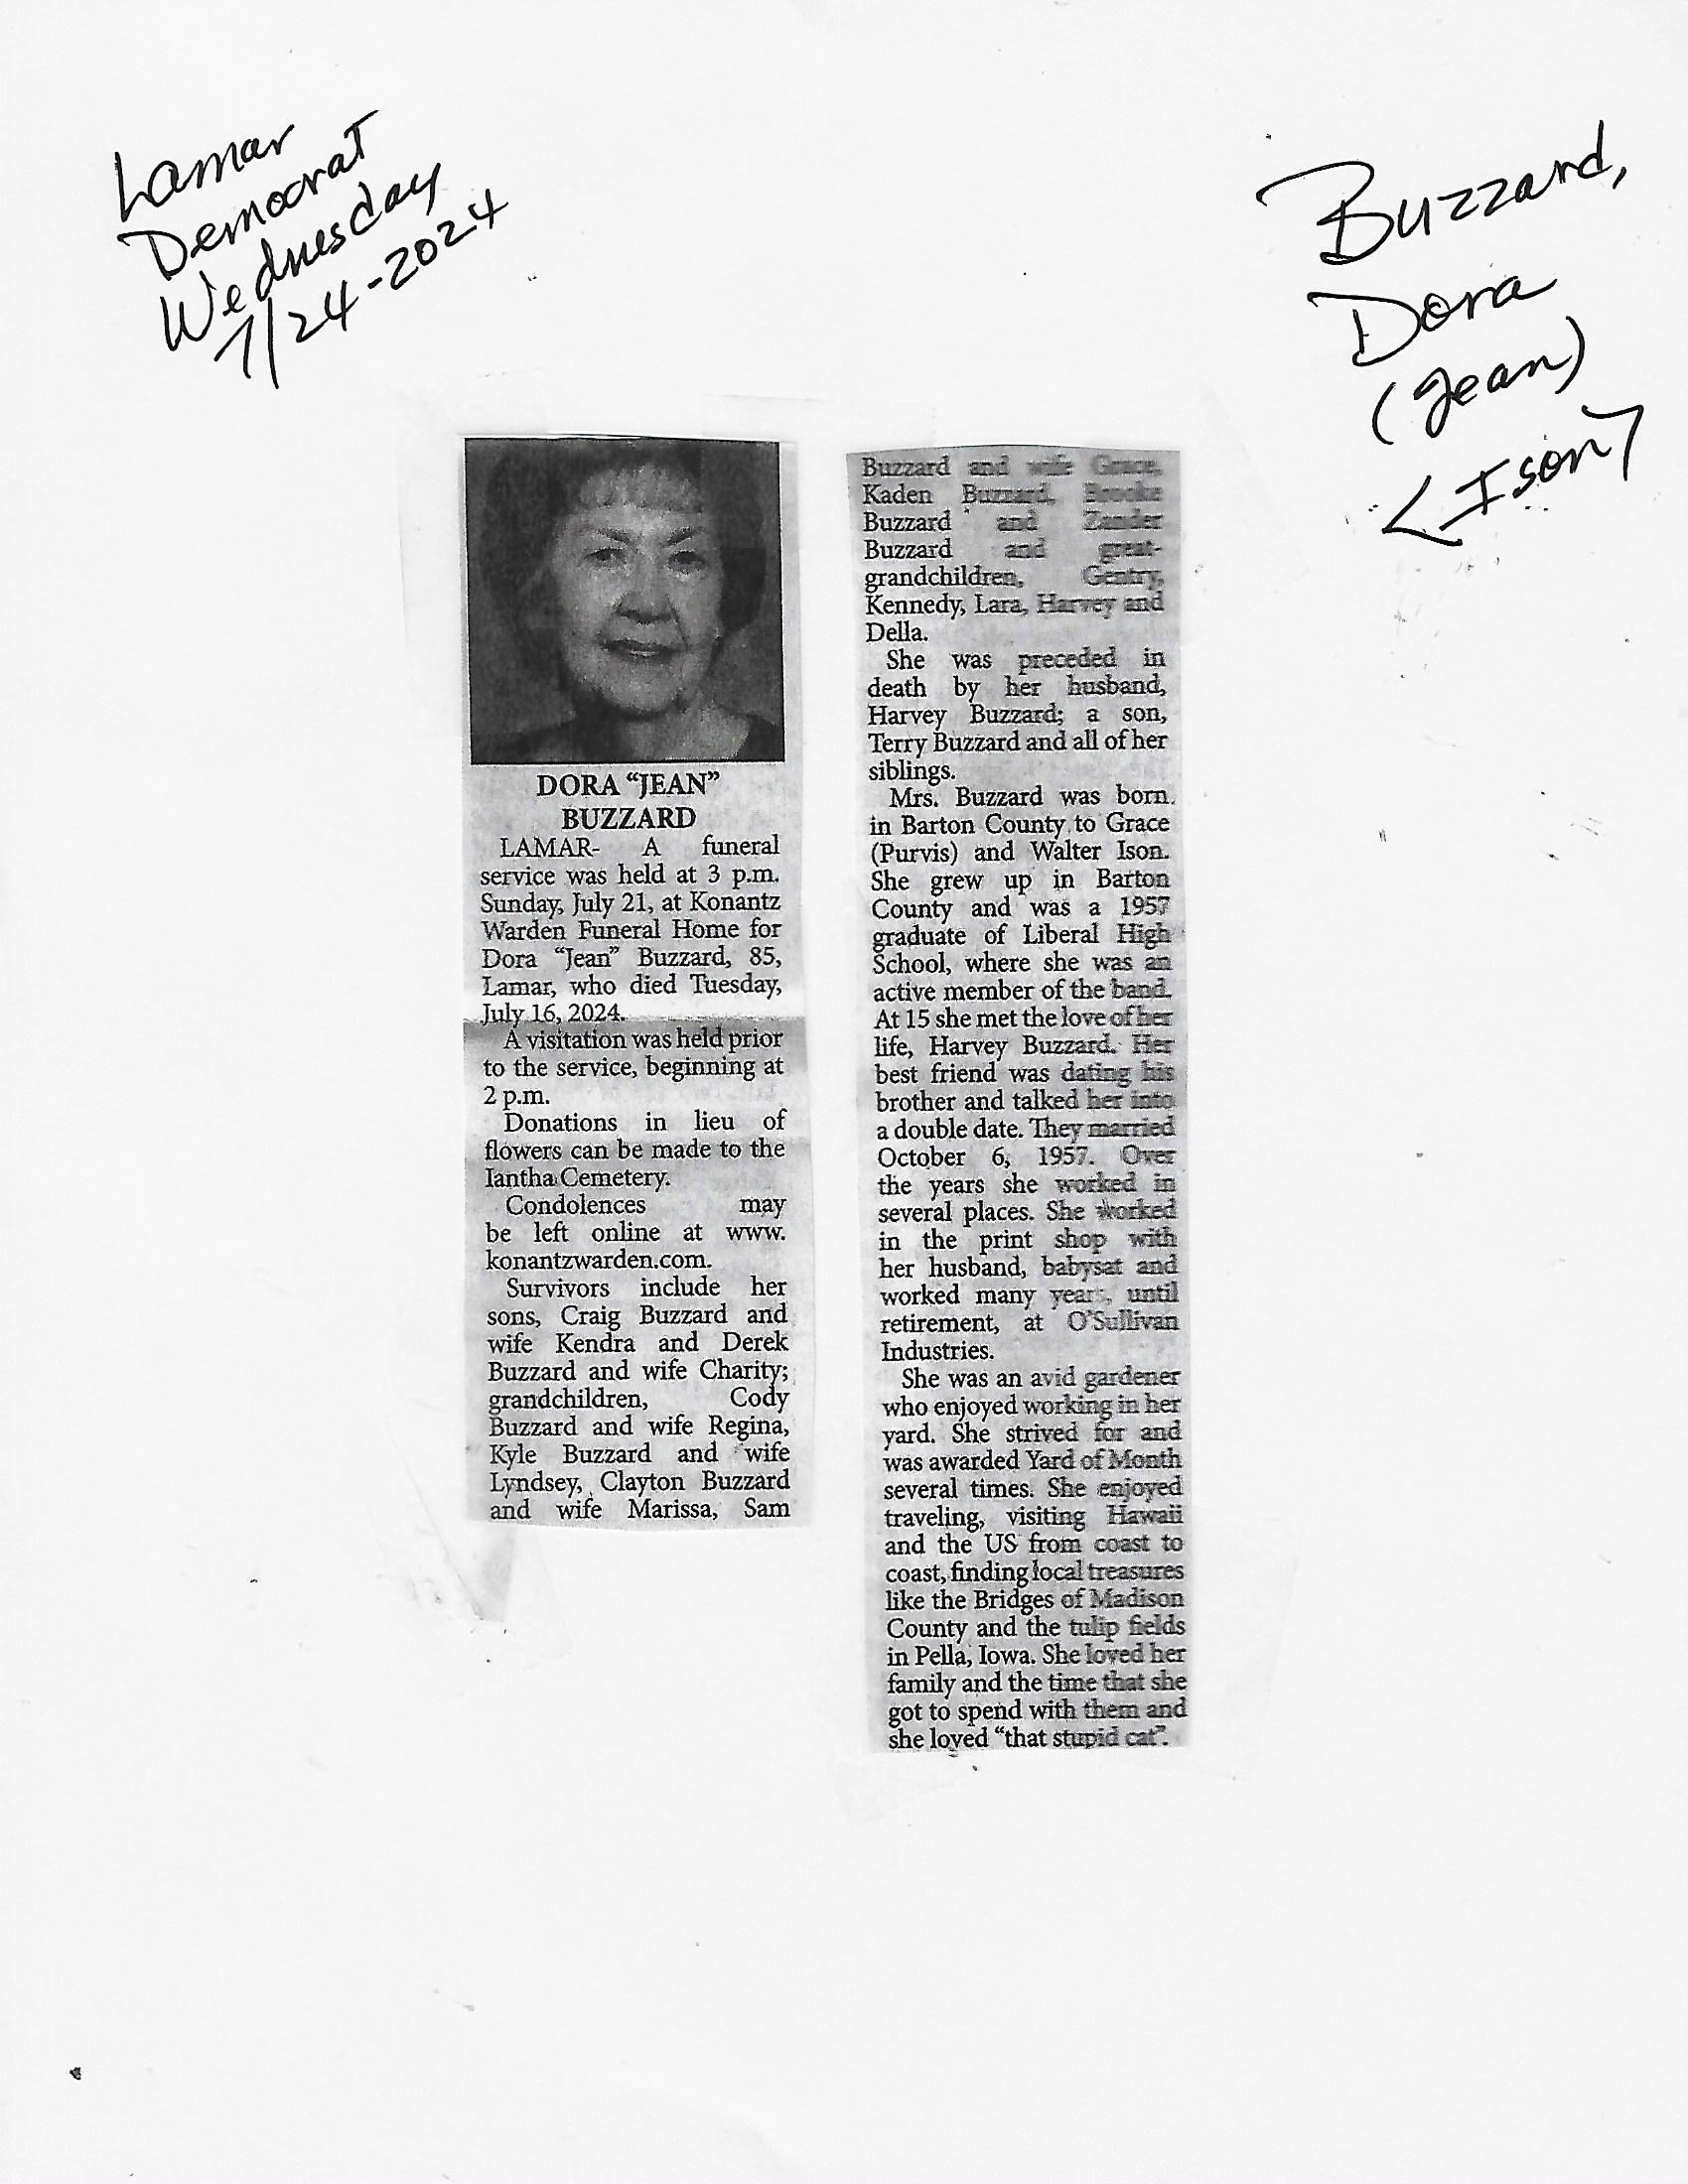 Lamar
Democrat
Wednesday
7/24-2024
Buzzard,
Dora
(Jean)
<Ison>
DORA “JEAN”
BUZZARD
LAMAR- A funeral
service was held at 3 p.m.
Sunday, July 21, at Konantz
Warden Funeral Home for
Dora “Jean” Buzzard, 85,
Lamar, who died Tuesday,
July 16, 2024.
A visitation was held prior
to the service, beginning at
2 p.m.
Donations in lieu of
flowers can be made to the
Iantha Cemetery.
Condolences may
be left online at www.
konantzwarden.com.
Survivors include her
sons, Craig Buzzard and
wife Kendra and Derek
Buzzard and wife Charity;
grandchildren, Cody
Buzzard and wife Regina,
Kyle Buzzard and wife
Lyndsey, Clayton Buzzard
and wife Marissa, Sam
Buzzard and wife Grace,
Kaden Buzzard, Brooke
Buzzard and Zander
Buzzard and great-
grandchildren, Gentry,
Kennedy, Lara, Harvey and
Della.
She was preceded in
death by her husband,
Harvey Buzzard; a son,
Terry Buzzard and all of her
siblings.
Mrs. Buzzard was born
in Barton County to Grace
(Purvis) and Walter Ison.
She grew up in Barton
County and was a 1957
graduate of Liberal High
School, where she was an
active member of the band.
At 15 she met the love of her
life, Harvey Buzzard. Her
best friend was dating his
brother and talked her into
a double date. They married
October 6, 1957. Over
the years she worked in
several places. She worked
in the print shop with
her husband, babysat and
worked many years, until
retirement, at O’Sullivan
Industries.
She was an avid gardener
who enjoyed working in her
yard. She strived for and
was awarded Yard of Month
several times. She enjoyed
traveling, visiting Hawaii
and the US from coast to
coast, finding local treasures
like the Bridges of Madison
County and the tulip fields
in Pella, Iowa. She loved her
family and the time that she
got to spend with them and
she loved “that stupid cat”.